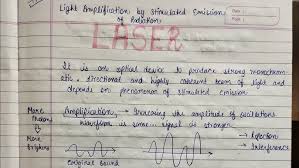 Light Amplification by Stimulated Emission
of Radiation
LASER
It is an optical device to produce strong monochrom
atic, directional and highly coherent beam of light and
depends on phenomenon of stimulated emission
More Amplification, → Increasing the amplitude of oscillations
photons waveform is same signal is stronger
More → Reflection
Brighter → Interference
Original Sound